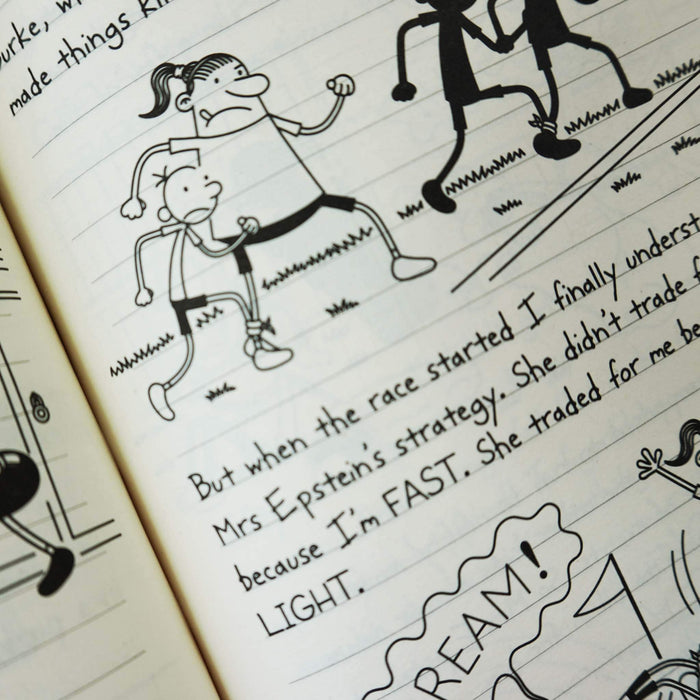 made things
But when the race started I finally
Mrs Epstein's strategy. She didn't trade
because I'm FAST. She traded for me
LIGHT.
REAM!